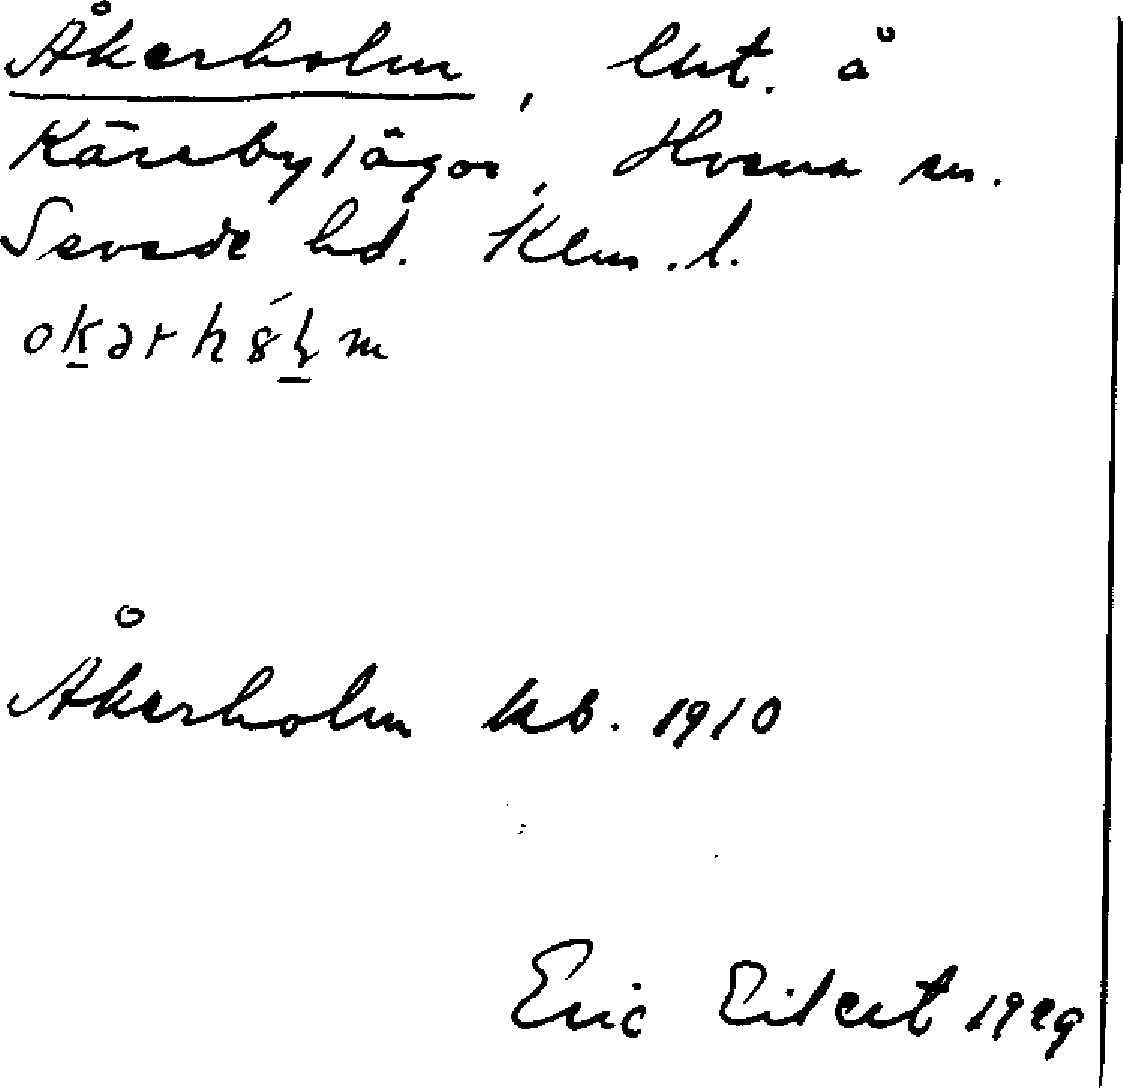 Åkerholm, lht. å
Kärrby ägor, Hvena sn.
Sevede hd. Klm. l.
Åkerholm kb. 1910
Eric Eilert 1929